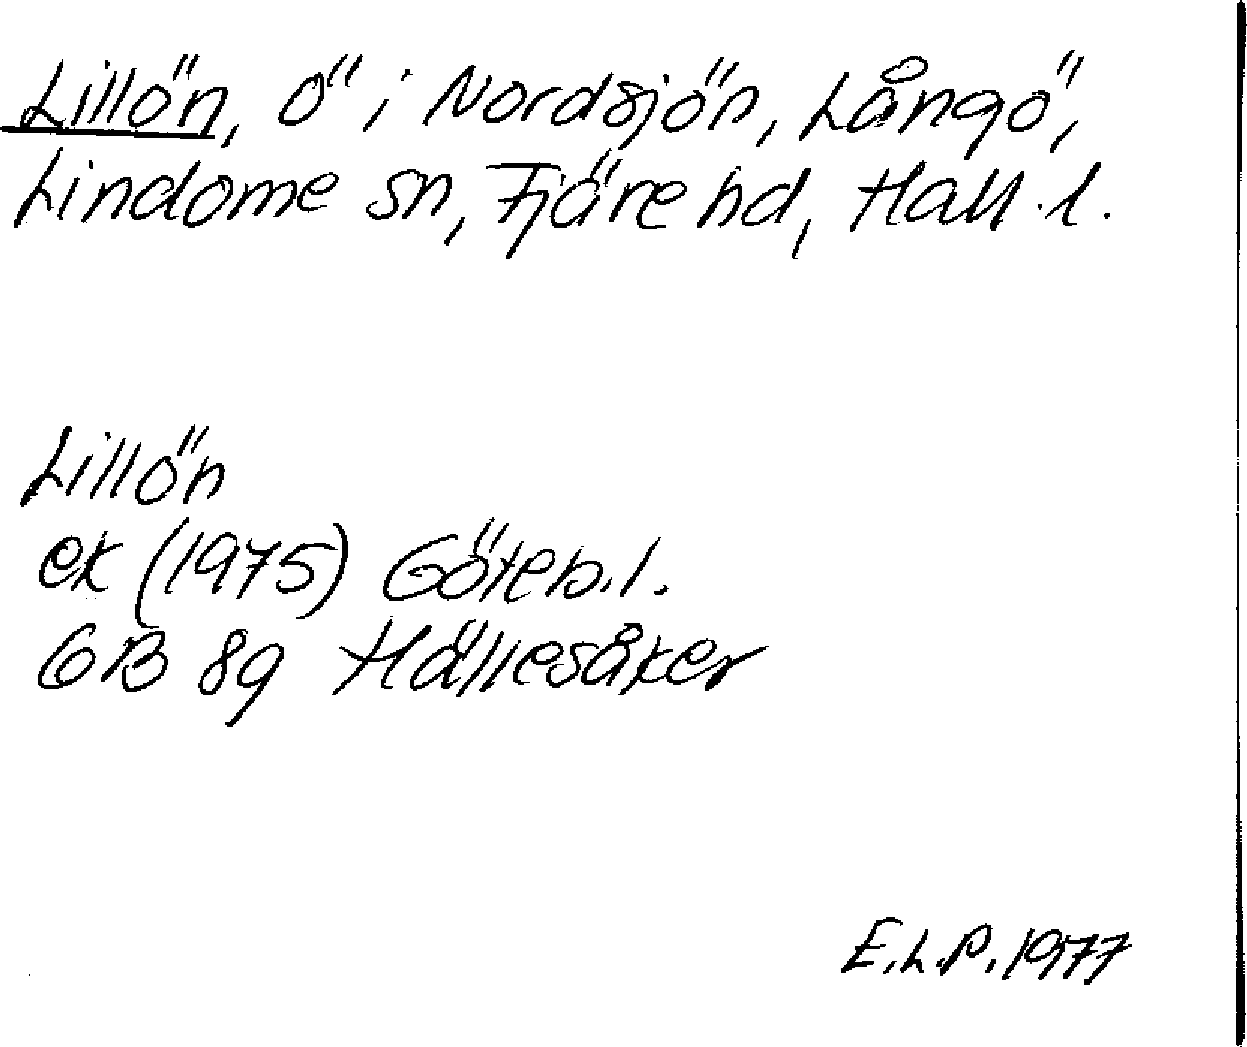 Lillön, ö i Nordsjön, Långö,
Lindome sn, Fjäre hd, Hall. l.
Lillön
ek (1975) Göteb. l.
6B 8g Hällesåker
E.L.P. 1977